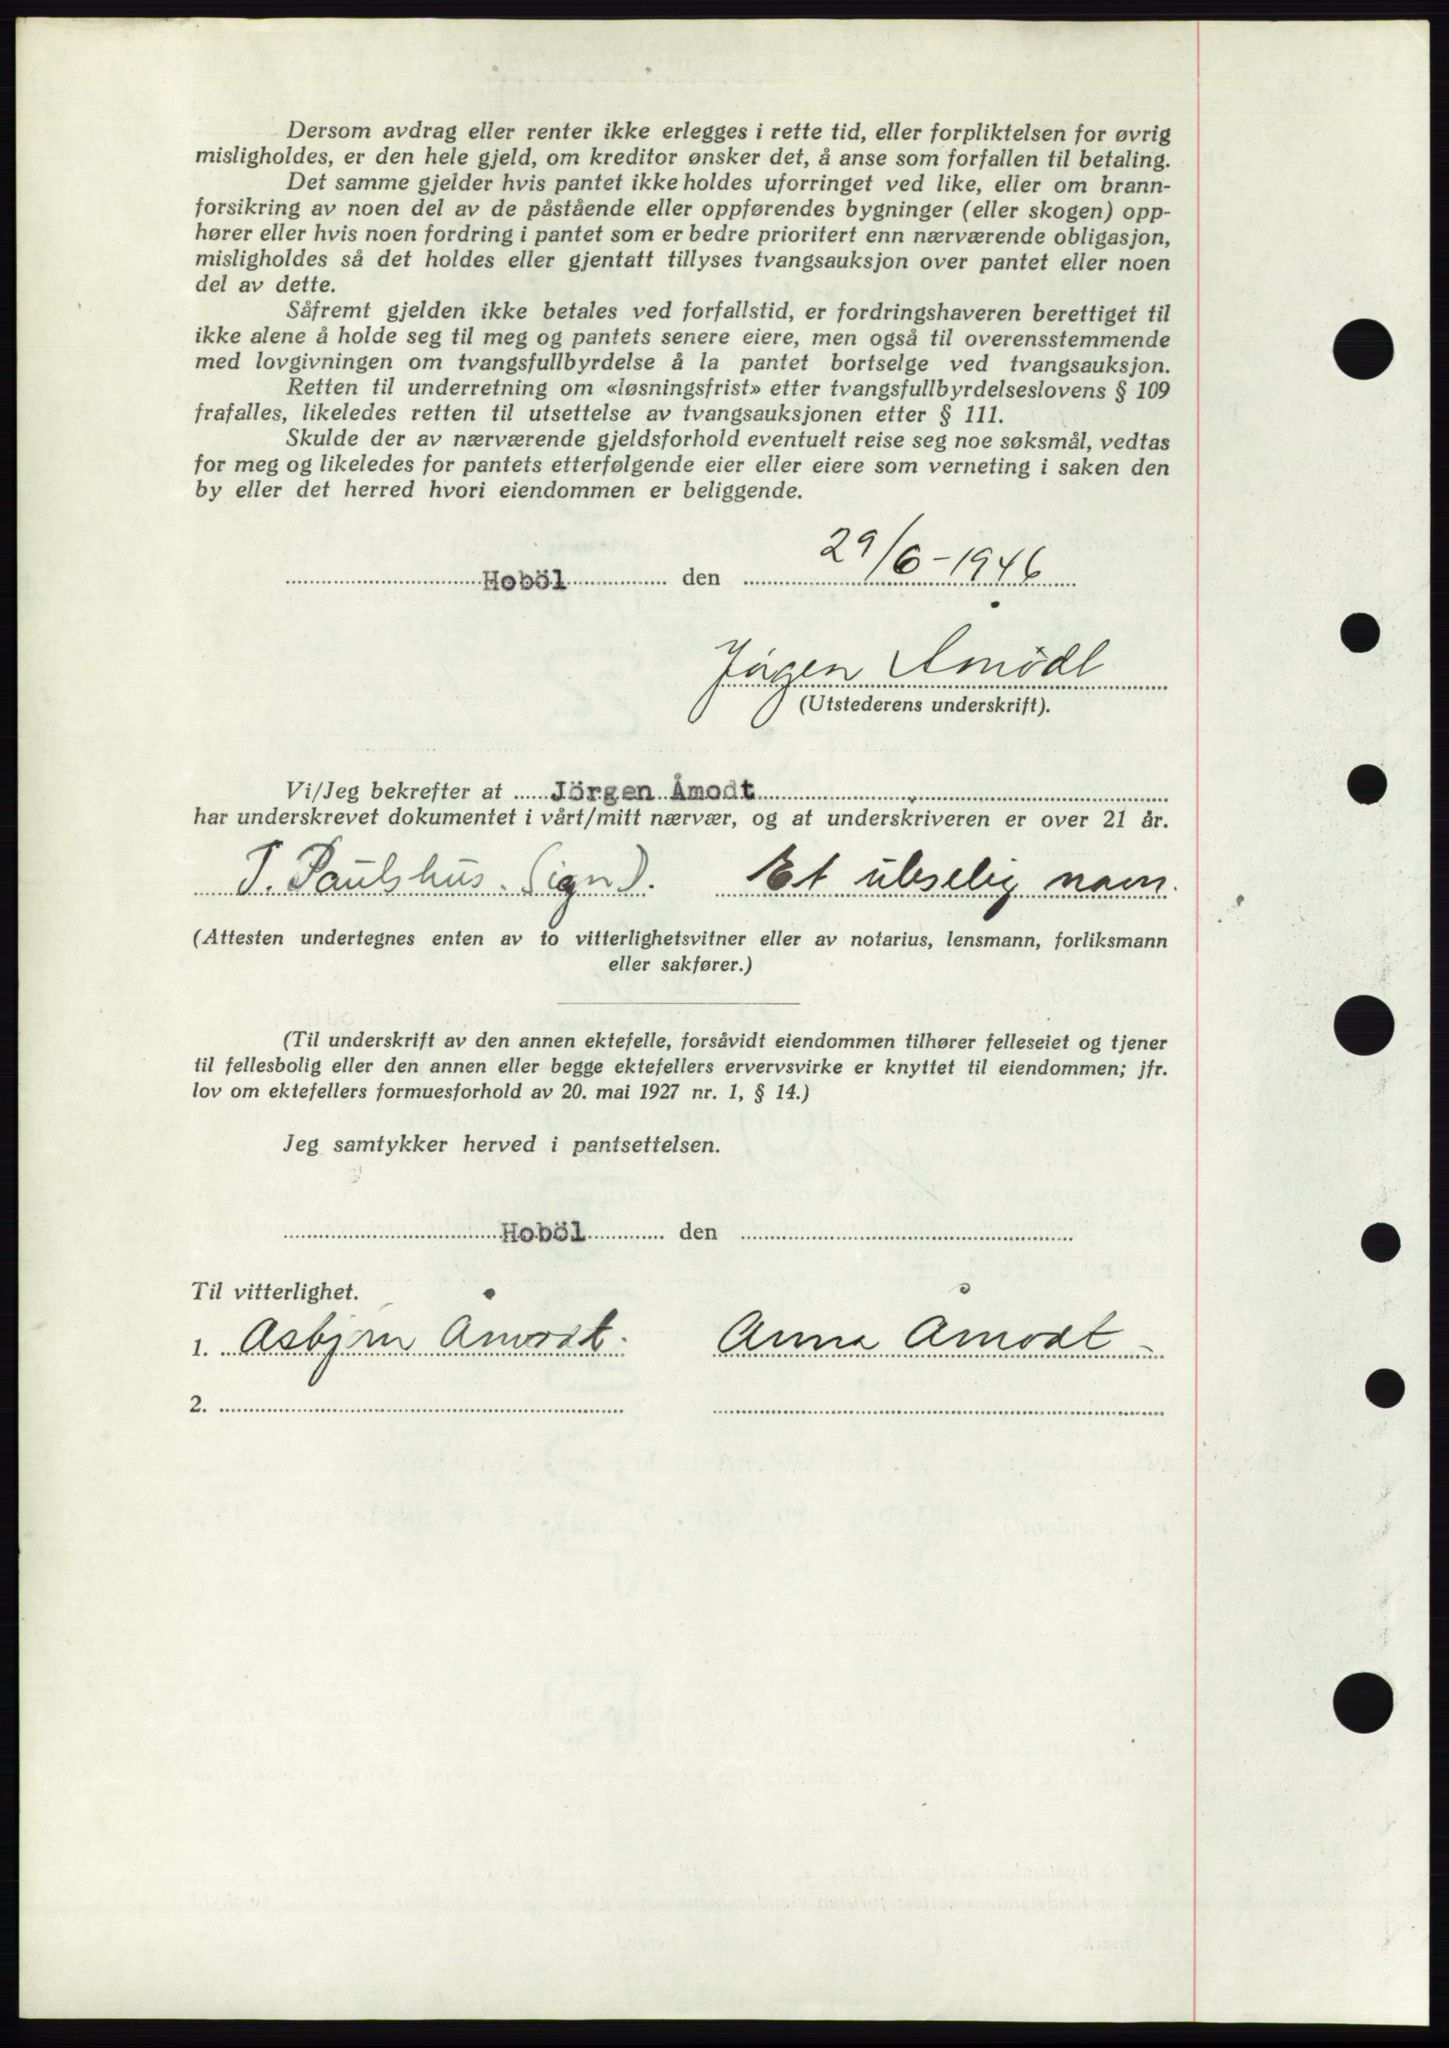 Dersom avdrag eller renter ikke erlegges i rette tid, eller forpliktelsen for øvrig
misligholdes, er den hele gjeld, om kreditor ønsker det, å anse som forfallen til betaling.
Det samme gjelder hvis pantet ikke holdes uforringet ved like, eller om brann-
forsikring av noen del av de påstående eller oppførendes bygninger (eller skogen) opp-
hører eller hvis noen fordring i pantet som er bedre prioritert enn nærværende obligasjon,
misligholdes så det holdes eller gjentatt tillyses tvangsauksjon over pantet eller noen
del av dette.
Såfremt gjelden ikke betales ved forfallstid, er fordringshaveren berettiget til
ikke alene å holde seg til meg og pantets senere eiere, men også til overensstemmende
med lovgivningen om tvangsfullbyrdelse å la pantet bortselge ved tvangsauksjon.
Retten til underretning om «løsningsfrist» etter tvangsfullbyrdelseslovens § 109
frafalles, likeledes retten til utsettelse av tvangsauksjonen etter § 111.
Skulde der av nærværende gjeldsforhold eventuelt reise seg noe søksmål, vedtas
for meg og likeledes for pantets etterfølgende eier eller eiere som verneting i saken den
by eller det herred hvori eiendommen er beliggende.
Hoböl den 29/6-1946
Jögen Åmodt
(Utstederens underskrift).
Vi/Jeg bekrefter at Jörgen Åmodt
har underskrevet dokumentet i vårt/mitt nærvær, og at underskriveren er over 21 år.
T. Paulshus. (sign). Et uleselig navn.
(Attesten undertegnes enten av to vitterlighetsvitner eller av notarius, lensmann, forliksmann
eller sakfører.)
(Til underskrift av den annen ektefelle, forsåvidt eiendommen tilhører felleseiet og tjener
til fellesbolig eller den annen eller begge ektefellers ervervsvirke er knyttet til eiendommen; jfr.
lov om ektefellers formuesforhold av 20. mai 1927 nr. 1, § 14.)
Jeg samtykker herved i pantsettelsen.
Hoböl den
Til vitterlighet.
1. Asbjørn Åmodt. Anna Åmodt
2.